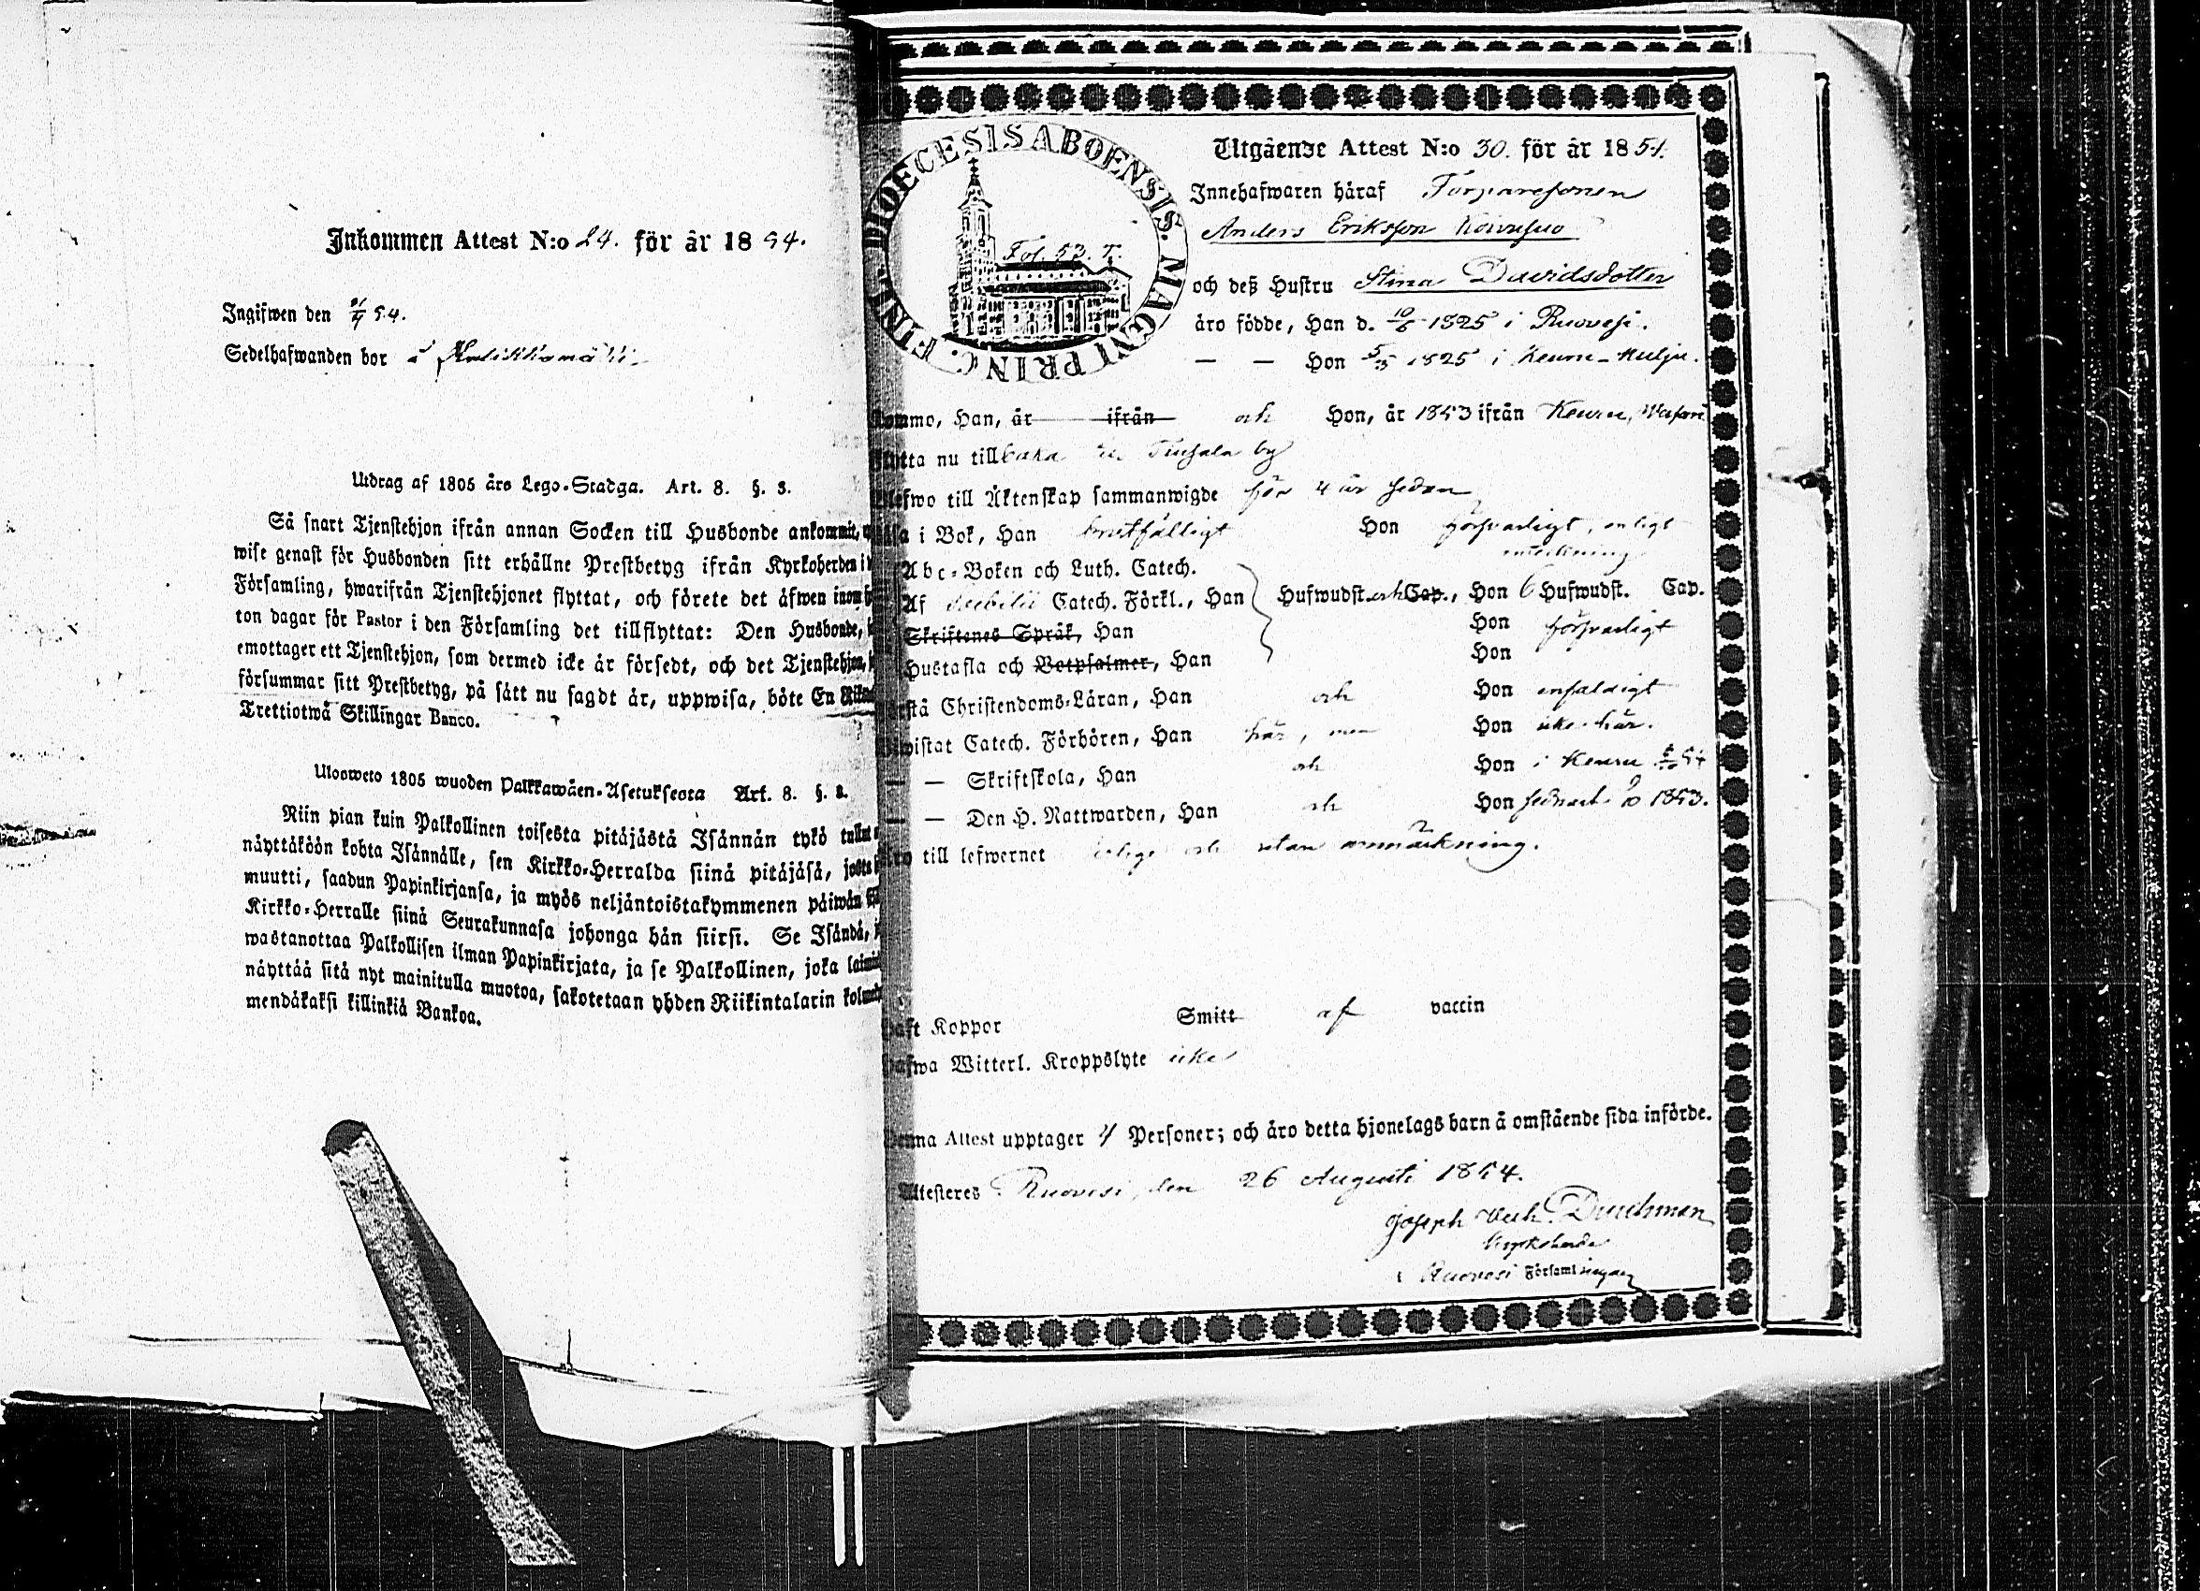 Inkommen Attest N:o 24. för år 1854.
Ingifwen den 54.
Sedelhafwanden bor å
Utdrag af 1805 års Lego-Stadga. Art. 8. §. 3.
Så snart Tjenstehjon ifrån annan Socken till Husbonde ankommit,
wise genast för Husbonden sitt erhållne Prestbetyg ifrån Kyrkoherden i
Församling, hwarifrån Tjenstehjonet flyttat, och förete det äfwen inom
ton dagar för Pastor i den Församling det tillflyttat: Den Husbonde,
emottager ett Tjenstehjon, som dermed icke är försedt, och det Tjenstehjon,
försummar sitt Prestbetyg, på sätt nu sagdt är, uppwisa, böte En
Trettiotwå Skillingar Banco.
Ulosweto 1805 wuoden Palkkawäen-Asetuksesta Art. 8. §. 3.
Niin pian kuin Palkollinen toisesta pitäjästä Isännän tykö tullut
näyttäköön kohta Isännälle, sen Kirkko-Herralda siinä pitäjäsä, josta
muutti, saadun Papinkirjansa, ja myös neljäntoistakymmenen päiwän
Kirkko-Herralle siinä Seurakunnasa johonga hän siirsi. Se Isändä,
wastanottaa Palkollisen ilman Papinkirjata, ja se Palkollinen, joka
näyttää sitä nyt mainitulla muotoa, sakotetaan yhden Riikintalarin
mendäkaksi killinkiä Bankoa.
FINL. DIOECESIS ABOENSIS. MAGNI PRINC.
Fol. 53. T.
Utgående Attest N:o 30. för år 1854.
Innehafwaren häraf Torparesonen
Anders Eriksson Koivusuo
och deß Hustru Stina Davidsdotter
äro födde, Han d. 1825 i Ruovesi.
— — Hon 5/5 1825 i Keuru-Multja.
Kommo, Han, år ifrån och Hon, år 1853 ifrån Keuru,
flytta nu tillbaka till by
Blefwo till Äktenskap sammanwigde för 4 år sedan
Läsa i Bok, Han Hon försvarligt, enligt
Abc-Boken och Luth. Catech.
Af Svebilii Catech. Förkl., Han Hufwudst. och Cap., Hon 6 Hufwudst. Cap.
Skriftenes Språk, Han Hon försvarligt
Hustafla och Botpsalmer, Han Hon
Förstå Christendoms-Läran, Han och Hon enfaldigt
Bewistat Catech. Förhören, Han här, men Hon icke här.
— — Skriftskola, Han och Hon i Keuru 54
— — Den H. Nattwarden, Han och Hon sednast 1853.
Äro till lefwernet ärlige och utan anmärkning.
Haft Koppor Smitt af vaccin
Hafwa Witterl. Kroppslyte icke
Denna Attest upptager 4 Personer; och äro detta hjonelags barn å omstående sida införde.
Attesteres Ruovesi, den 26 Augusti 1854.
Joseph Wilh. Durchman
Kyrkoherde
i Ruovesi Församlingar